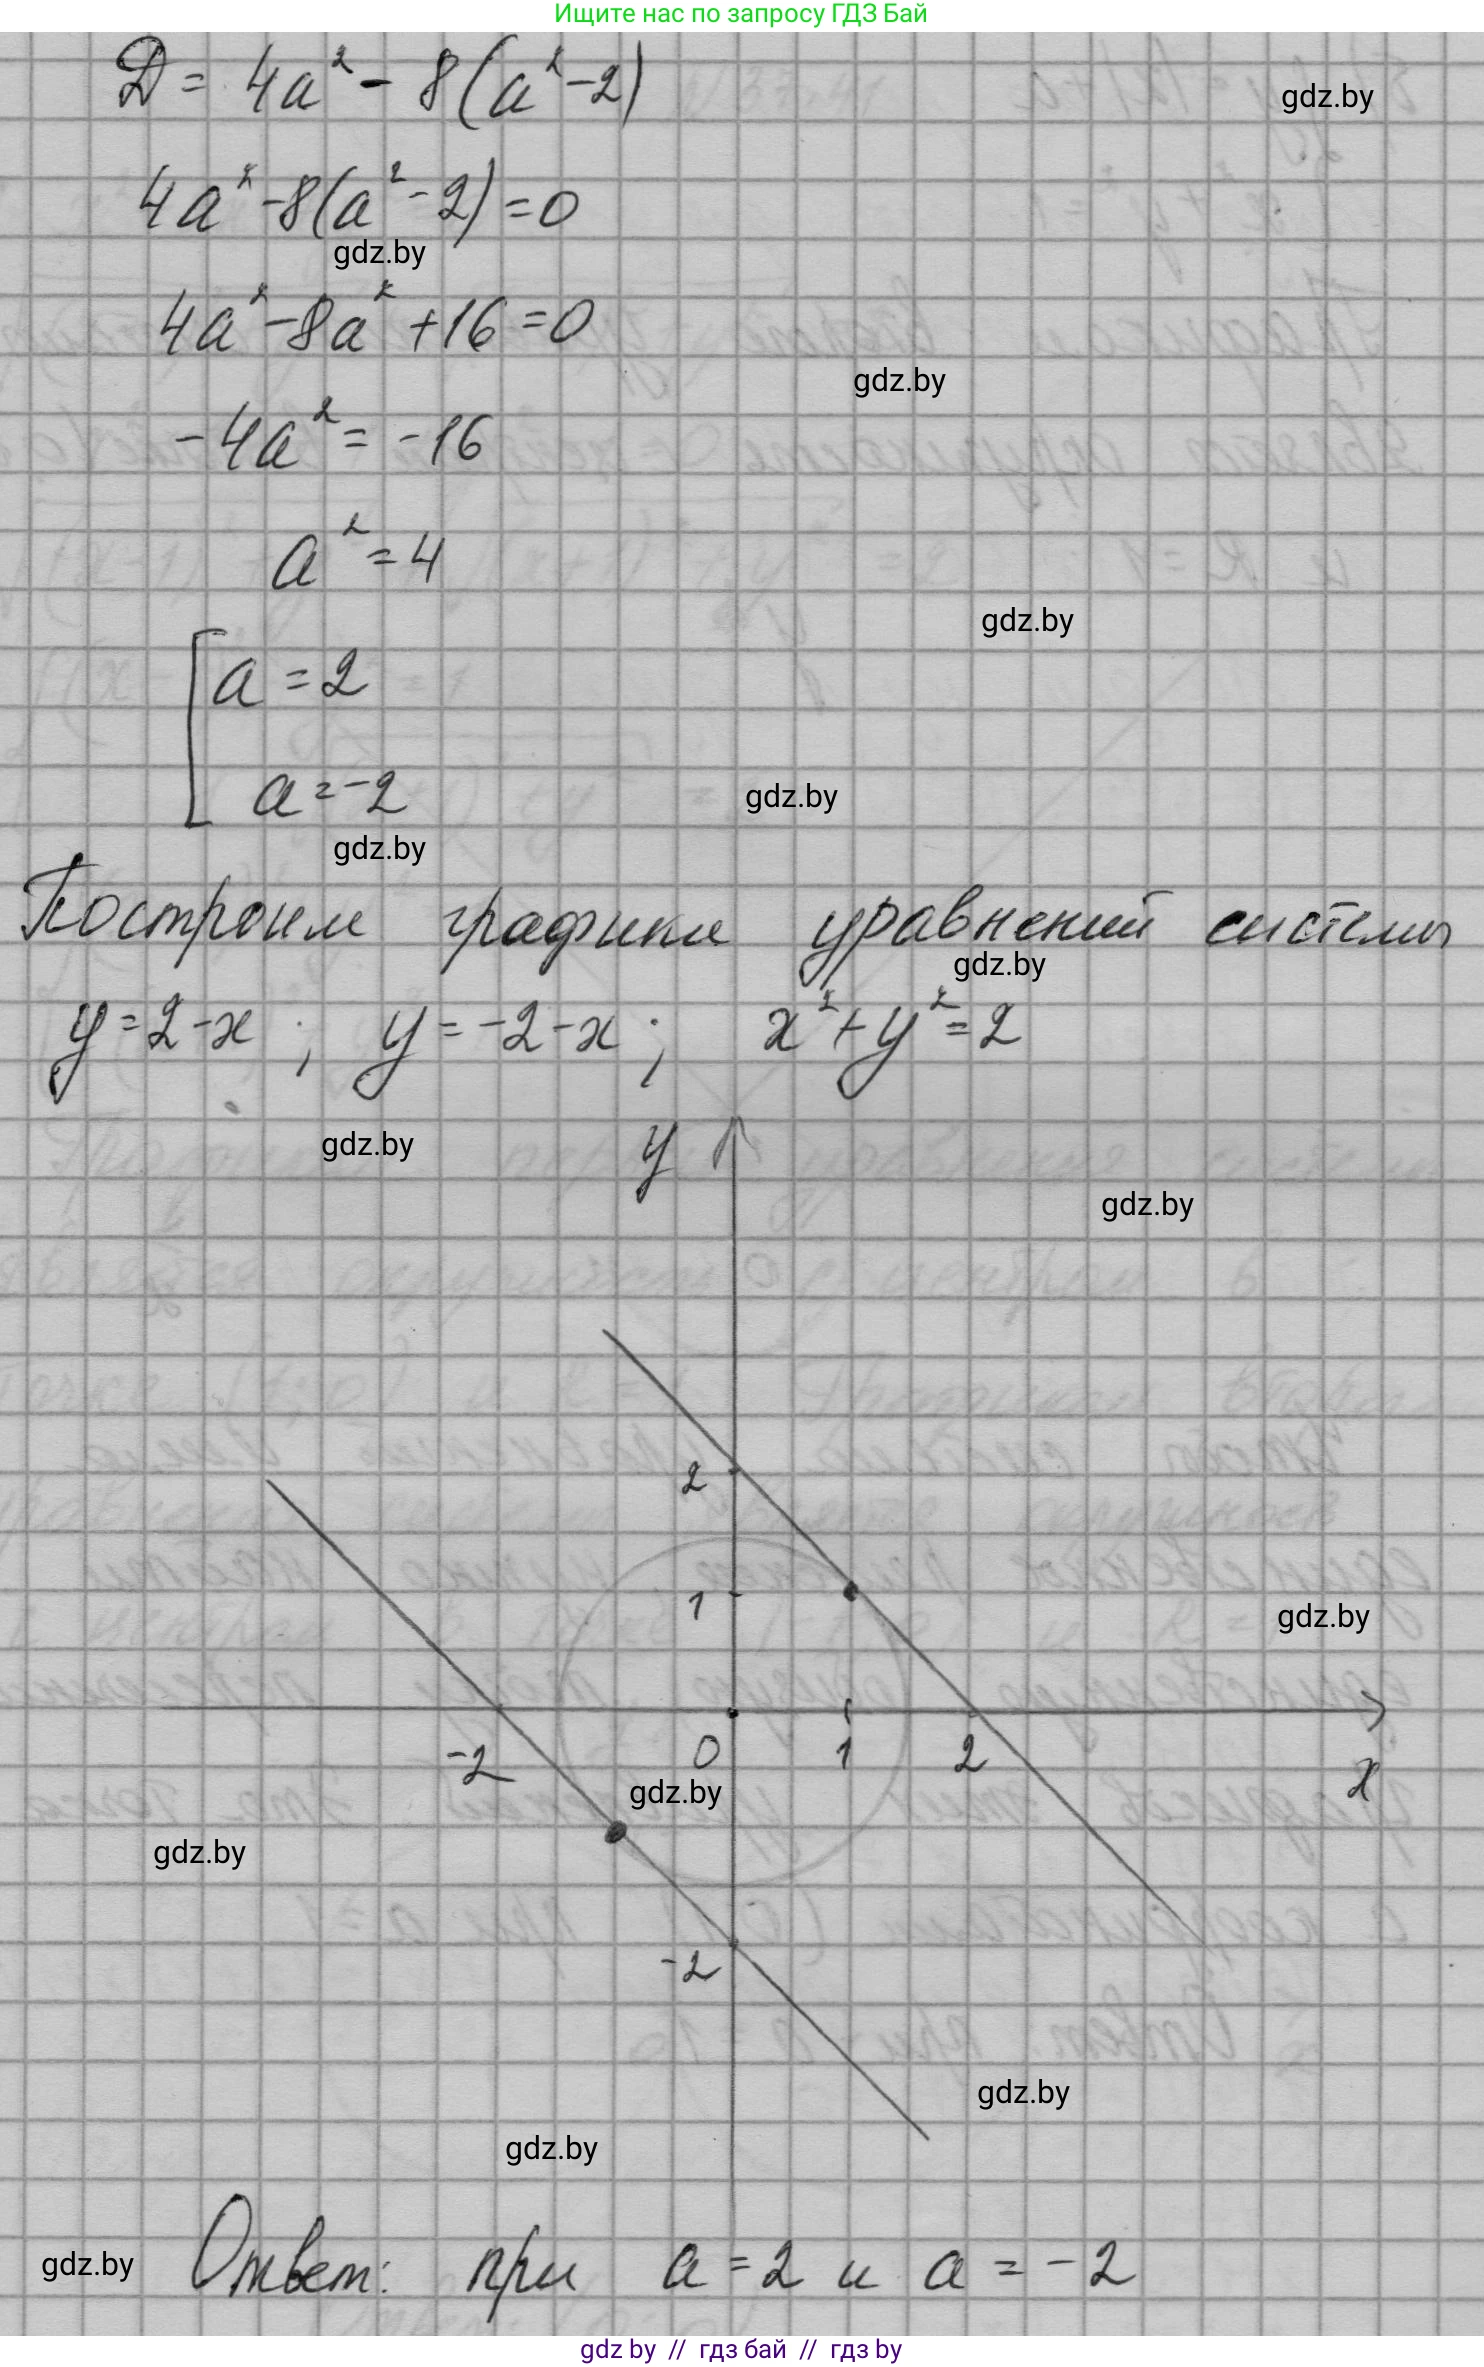 Ищите нас по запросу ГДЗ Бай
D = 4a² - 8(a² - 2)
gdz.by
4a² - 8(a² - 2) = 0
gdz.by
4a² - 8a² + 16 = 0
gdz.by
-4a² = -16
a² = 4
gdz.by
[a = 2
a = -2
gdz.by
gdz.by
Построим графики уравнений системы
gdz.by
y = 2 - x ; y = -2 - x ; x² + y² = 2
gdz.by
y
gdz.by
2
1
gdz.by
-2
0
1
2
x
gdz.by
gdz.by
-2
gdz.by
gdz.by
gdz.by
Ответ: при a = 2 и a = -2
gdz by // гдз бай // гдз by